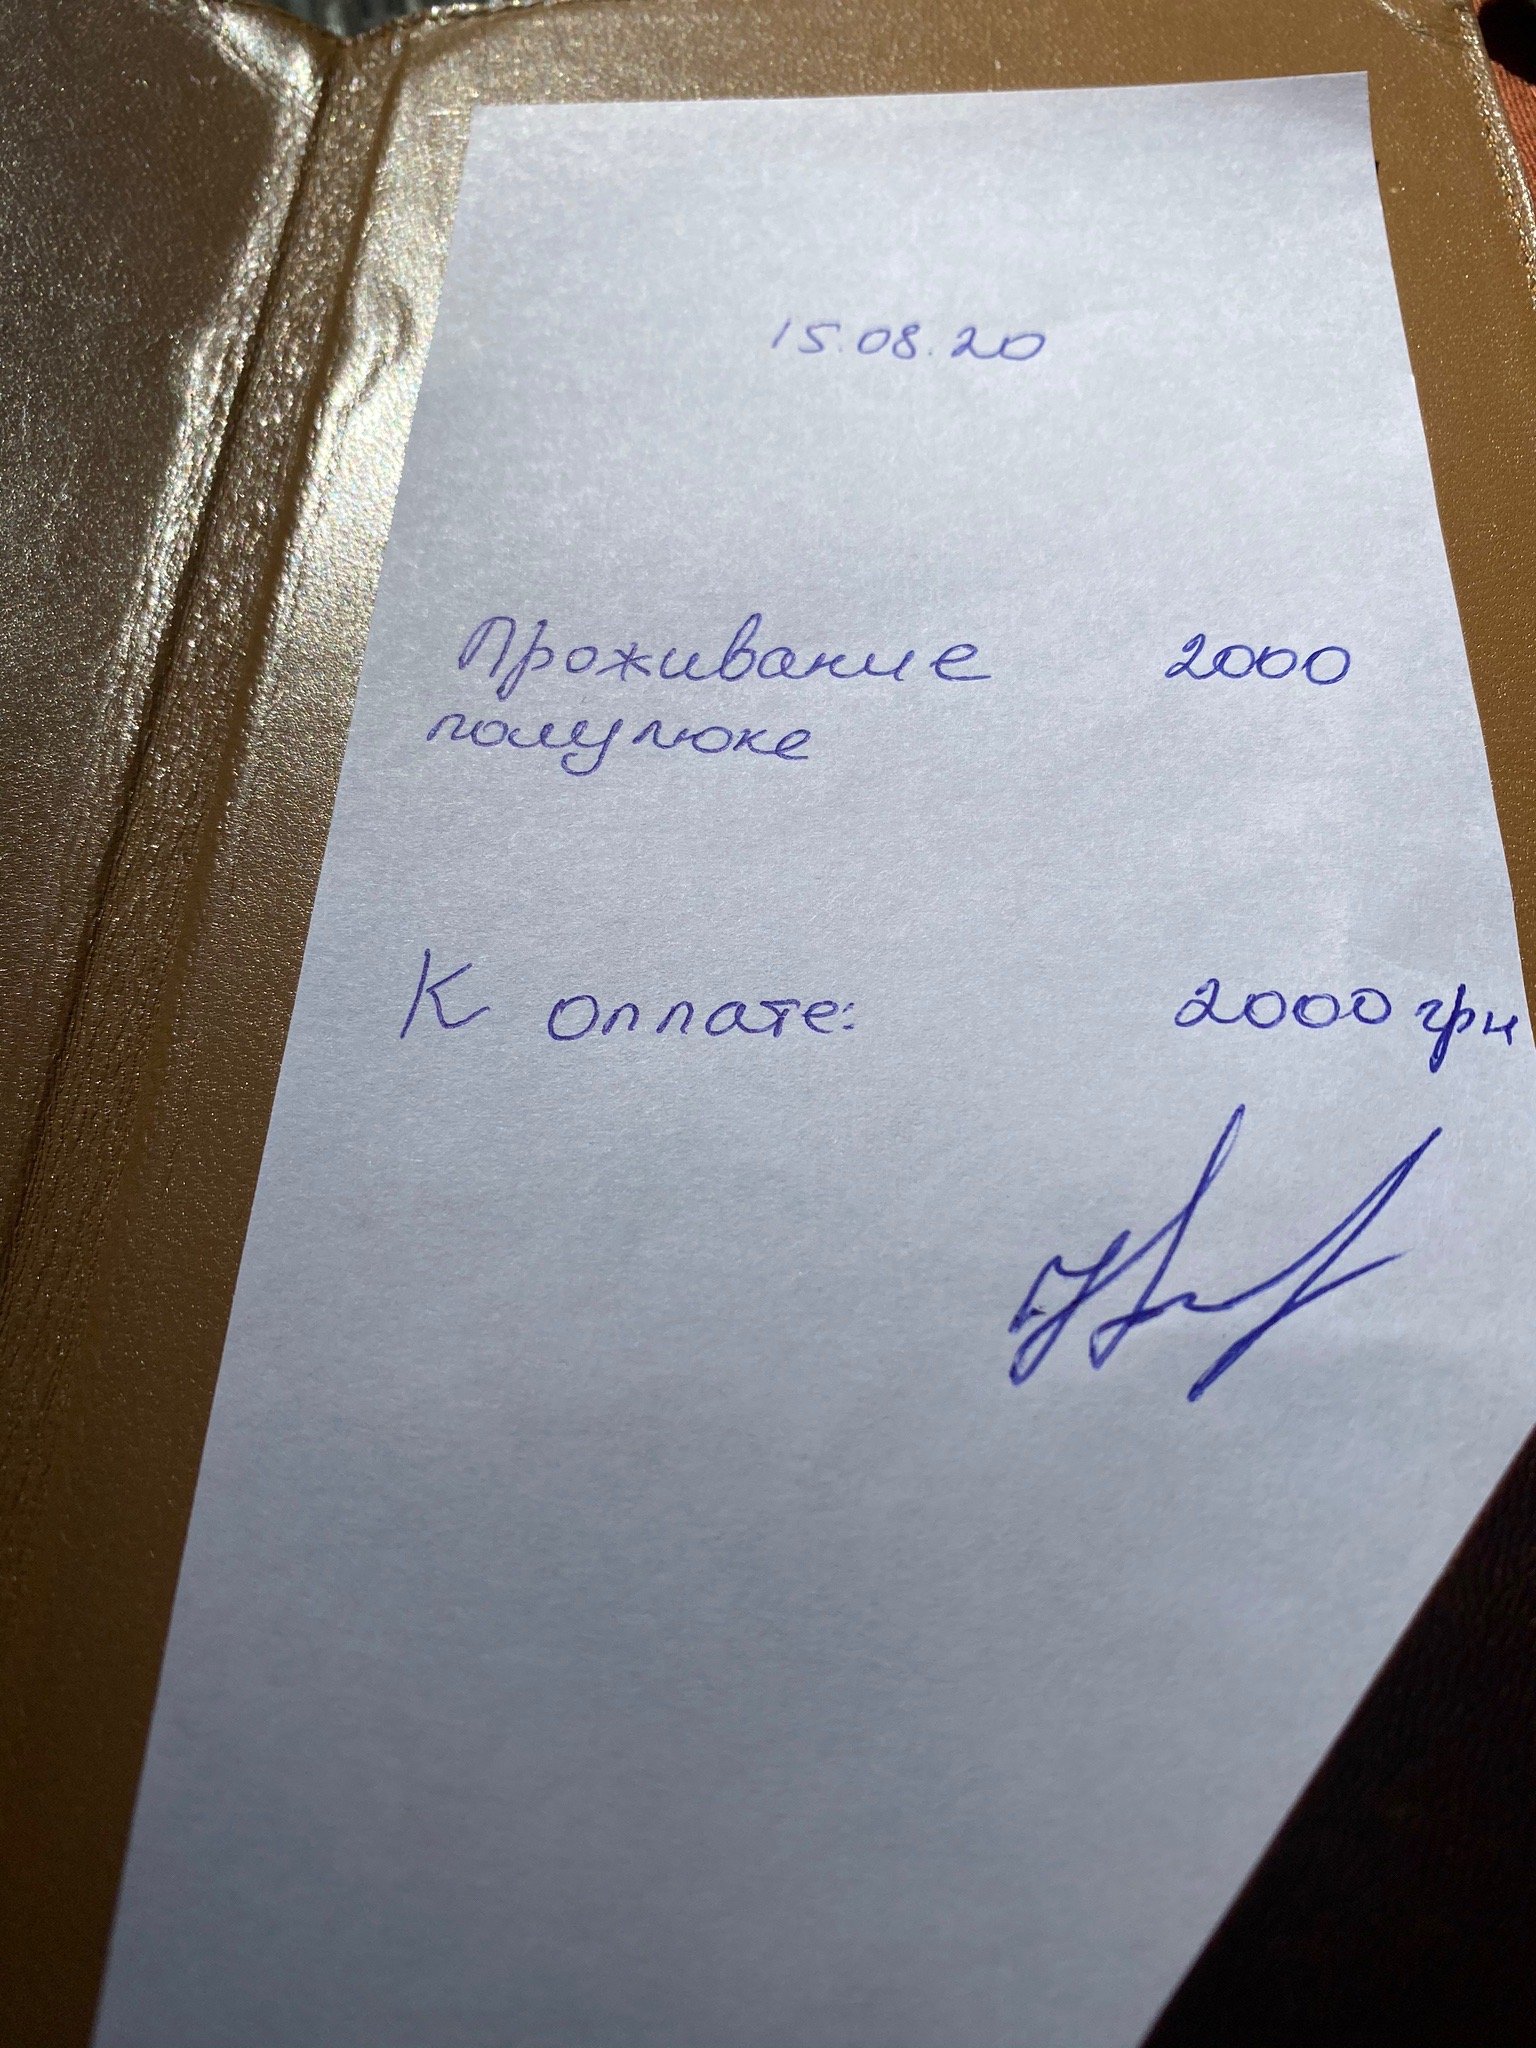 15.08.20
Проживание 2000
полулюке
К оплате: 2000 грн